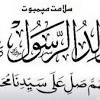 سلامت مڽمبوت
لد الرسول
هم صل على سيدنا محمد